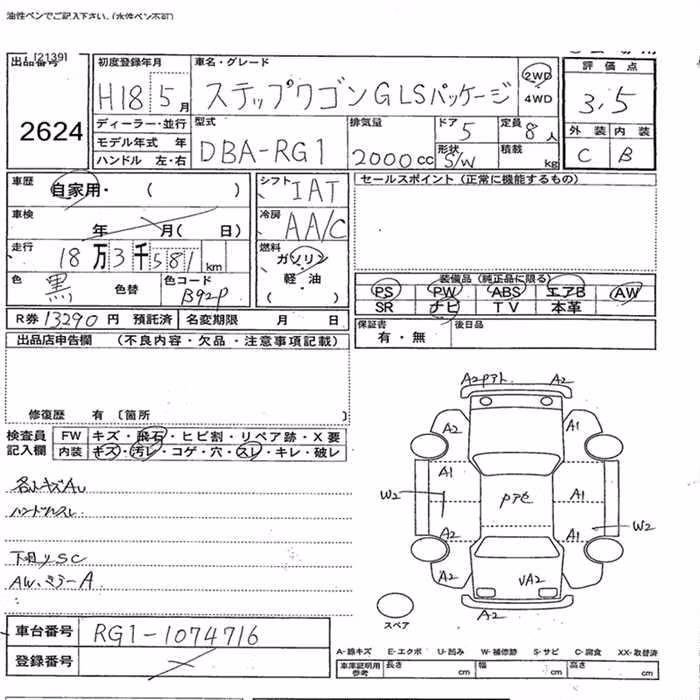 油性ペンでご記入下さい。(水性ペン不可)
[2139]
出品番号
2624
初度登録年月
H18 5月
車名・グレード
ステップワゴンGLSパッケージ
2WD
4WD
評価点
3,5
外装 内装
C B
ディーラー・並行
モデル年式 年
ハンドル 左・右
型式
DBA-RG1
排気量
2000cc
ドア 5
形状 S/W
定員 8人
積載 kg
車歴 自家用・( )
車検 年 月( 日)
走行 18万3千581km
色 黒 色替
色コード B92P
シフト IAT
冷房 AA/C
燃料 ガソリン・軽・油
( )
セールスポイント(正常に機能するもの)
装備品(純正品に限る)
PS PW ABS エアB AW
SR ナビ TV 本革
R券 13290円 預託済 名変期限 月 日
保証書 有・無
後日品
出品店申告欄 (不良内容・欠品・注意事項記載)
修復歴 有〔箇所 〕
検査員記入欄
FW キズ・飛石・ヒビ割・リペア跡・X要
内装 キズ・汚レ・コゲ・穴・スレ・キレ・破レ
各小キズAU
ハンドルスレ
SC
AW、ミラーA
A2 Pアト A2
A2 A1
A1
W2 Pアセ A1
W2
A2 A1
A2 VA2 A1
A2
スペア
車台番号 RG1-1074716
登録番号
A-線キズ E-エクボ U-凹み W-補修跡 S-サビ C-腐食 XX-取替済
車庫証明用参考 長さ cm 幅 cm 高さ cm